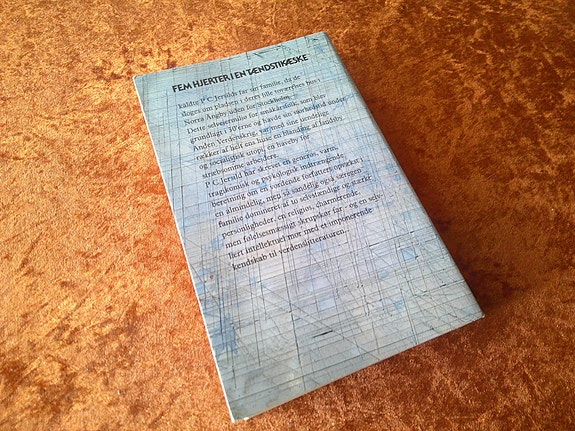 FEM HJERTER I EN TÆNDSTIKÆSKE
kaldte P. C. Jersilds far sin familie, da de
drages om pladsen i deret lille toværelses hus i
Norra Ängby uden for Stockholm.
Dette selvejermiljø for småkårsfolk, som blev
grundlagt i 30'erne og havde sin storhedstid under
Anden Verdenskrig, var med sine uendelige
rækker af helt ens huse en blanding af kolonby
og socialistisk utopi, en haveby for
stræbsomme arbejdere.
P. C. Jersild har skrevet en generøs, varm,
tragikomisk og psykologisk indtrængende
beretning om en vordende forfatters opvækst i
en almindelig, men så sandelig også særegen
familie domineret af to selvstændige og stærke
personligheder, en religiøs, charmerende,
men følelsesmæssigt skrupskør far, og en selv-
lært intellektuel mor med et imponerende
kendskab til verdenslitteraturen.